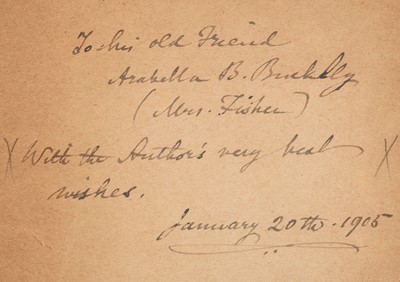 To his old Friend
Arabella B. Buckley
(Mrs. Fisher)
With the Author's very best
wishes.
January 20th. 1905